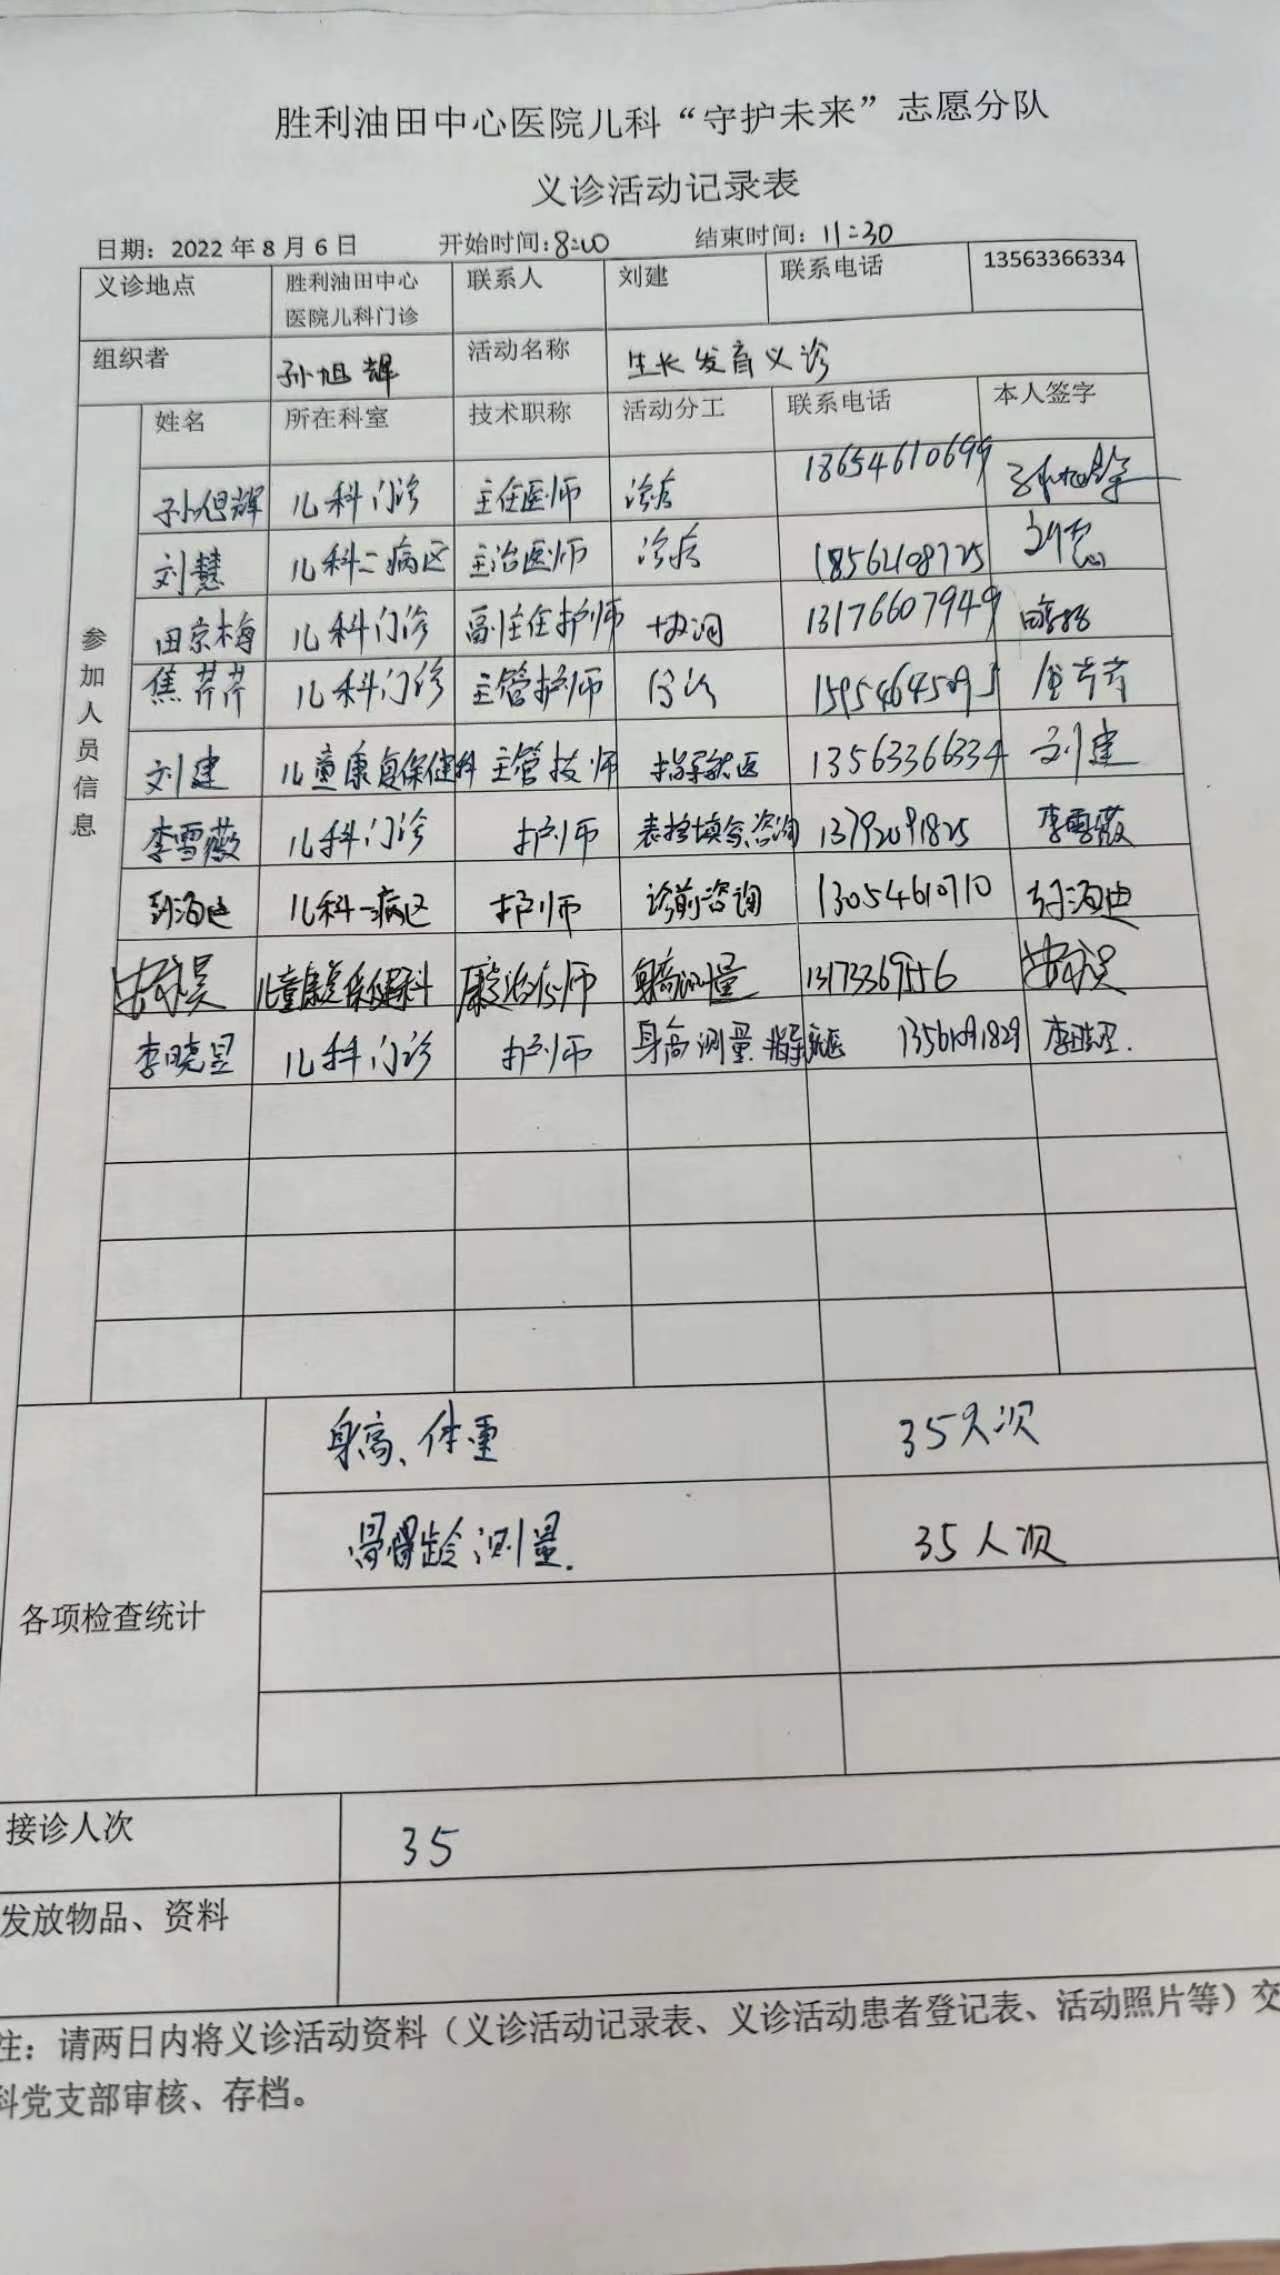 胜利油田中心医院儿科“守护未来”志愿分队
义诊活动记录表
日期：2022年8月6日 开始时间：8:00 结束时间：11:30
义诊地点 胜利油田中心医院儿科门诊 联系人 刘建 联系电话 13563366334
组织者 孙旭辉 活动名称 生长发育义诊
参加人员信息
姓名 所在科室 技术职称 活动分工 联系电话 本人签字
孙旭辉 儿科门诊 主任医师 诊病 18654610699 孙旭辉
刘慧 儿科二病区 主治医师 诊病 刘慧
田京梅 儿科门诊 副主任护师 协调 13176607949
焦芹芹 儿科门诊 主管护师 分诊 焦芹芹
刘建 儿童康复保健科 主管技师 指导就医 13563366334 刘建
李雪薇 儿科门诊 护师 咨询 13792091825 李雪薇
儿科一病区 护师 诊前咨询 13054610710
儿童康复保健科 康复治疗师 身高测量
李晓昱 儿科门诊 护师 身高测量.指导就医 13561091829
各项检查统计
身高、体重 35人次
骨龄测量. 35人次
接诊人次 35
发放物品、资料
注：请两日内将义诊活动资料（义诊活动记录表、义诊活动患者登记表、活动照片等）交
科党支部审核、存档。